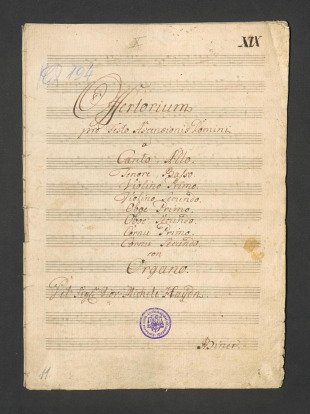 XIX
194
Offertorium
pro Festo Ascensionis Domini
a
Canto Alto.
Tenore Basso.
Violino Primo.
Violino Secundo.
Oboe Primo.
Oboe Secundo.
Cornu Primo.
Cornu Secundo.
con
Organo.
Del Sig: Michele Haydn.
11